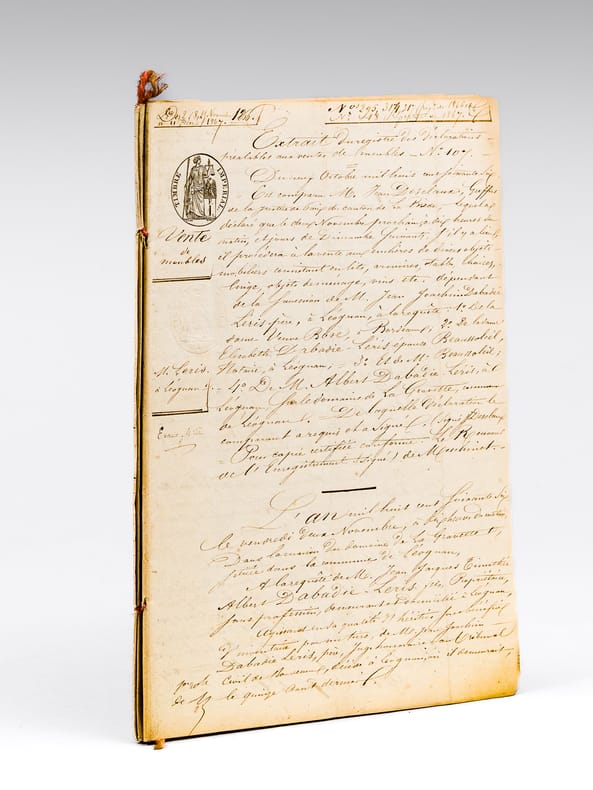 126.
Extrait du registre des Déclarations
préalables aux ventes de meubles - N° 107. -
TIMBRE IMPERIAL
Vente
de
meubles
Du cinq Octobre mil huit cent soixante Six
Est comparu M. Jean Greffier
de la justice de Paix du canton de La Brède, lequel a
déclaré que le deux Novembre prochain à dix heures du
matin, et jours de Dimanche Suivants, S'il y a lieu,
il procédera à la vente aux enchères de divers objets
mobiliers consistant en lits, armoires, table, chaises,
linge, objets de ménage, vins etc. dépendant
de la Succession de M. Jean Joachim Dabadie
Léris père, à Léognan, à la requête 1° De la
dame Veuve Rose, à Bordeaux, 2° De la dame
Elisabeth Dabadie-Léris épouse Beaussoleil,
Notaire, à Léognan, 3° Et de M. Beaussoleil;
4° De M. Albert Dabadie Léris, à
Léognan, Sur le domaine de La Gravette, commune
de Léognan. De laquelle Déclaration le
comparant a requis et a Signé. (Signé)
Pour copie certifiée conforme Le Receveur
de l'Enregistrement (Signé) de
M. Léris.
à Léognan
L'an mil huit cent Soixante Six
le vendredi deux Novembre, à dix heures du matin
Dans la maison du domaine de La Gravette,
située dans la commune de Léognan,
A la requête de M. Jean Jacques Timothée
Albert Dabadie-Léris, Propriétaire,
Sans profession, demeurant et domicilié à Léognan,
Agissant en sa qualité d'héritier, Sous bénéfice
D'inventaire, pour un tiers, de M. Jean Joachim
Dabadie Léris, père, Juge honoraire au Tribunal
Civil de Bordeaux, décédé à Léognan, où il demeurait,
le quinze Août dernier